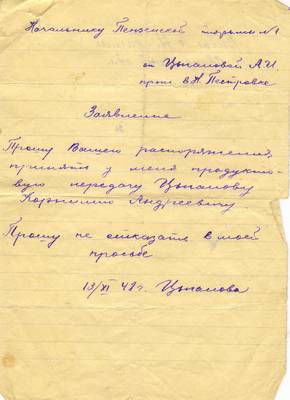 Начальнику Пензенской тюрьмы №1
от Цыпаловой А.И
прож. в Н. Пестровке
Заявление
Прошу Вашего распоряжения,
принять у меня продукто-
вую передачу Цыпалову
Корнилию Андреевичу
Прошу не отказать в моей
прозьбе
13/XI 42г. Цыпалова